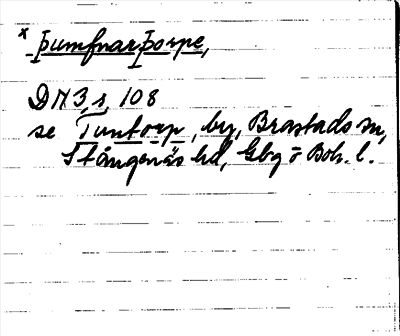 x þumfnarþorpe,
DN 3, s, 108
se Tuntorp, by, Brastads sn,
Stångenäs hd, Gbg o Boh. l.